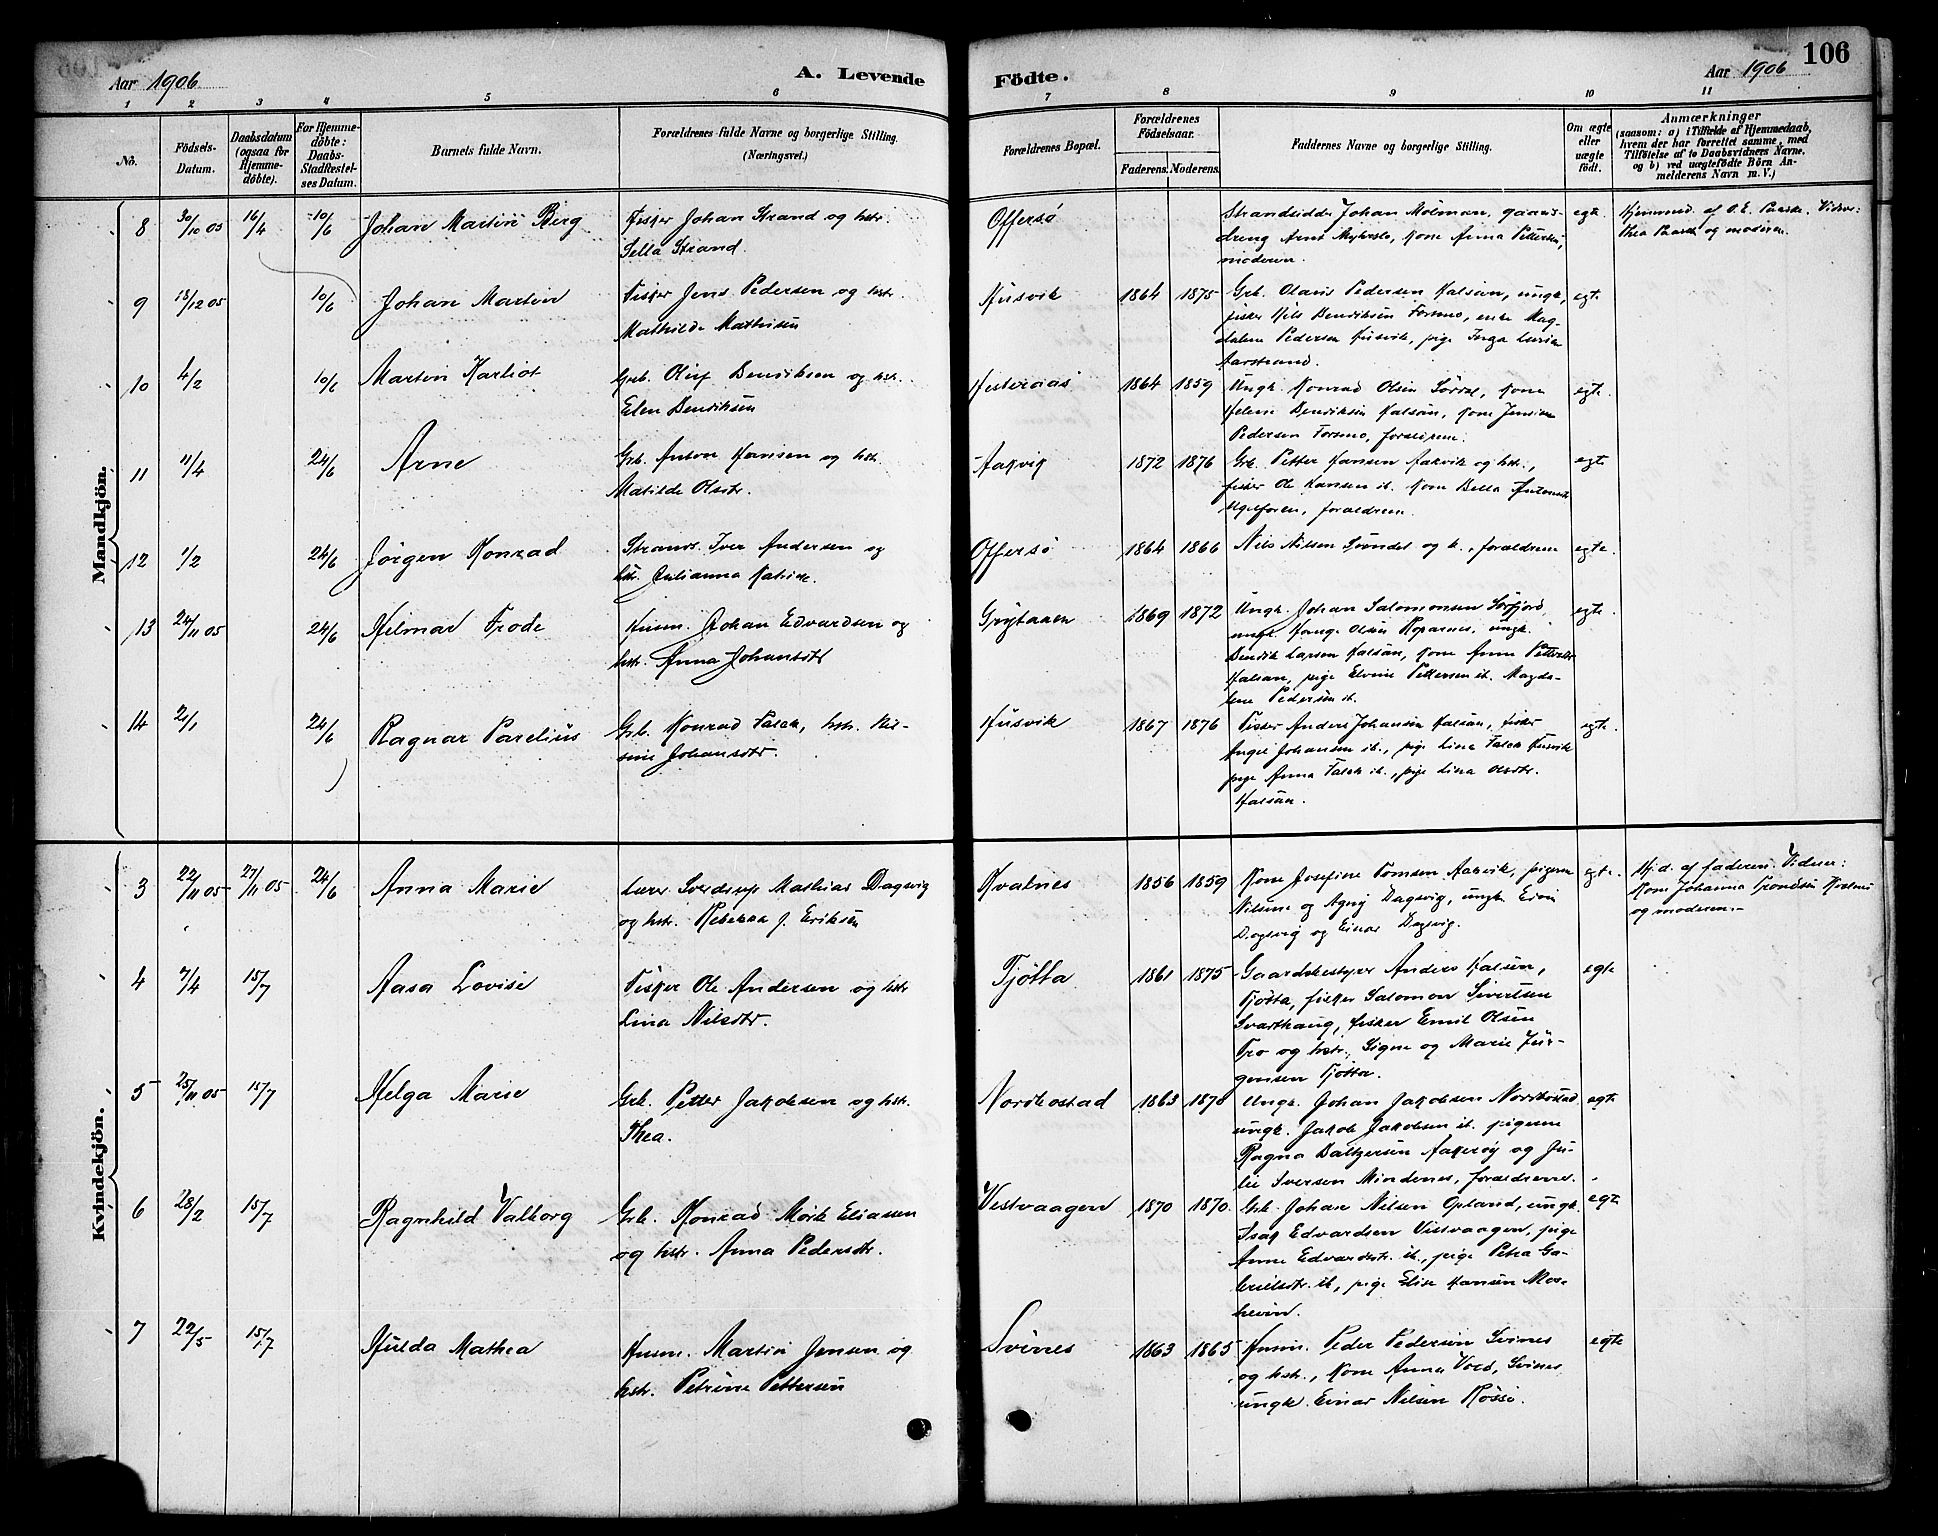 106
Aar 1906
A. Levende
Födte.
Aar 1906
1 2 3 4 5 6 7 8 9 10 11
No.
Födsels-Datum.
Daabsdatum (ogsaa for Hjemme-döbte).
For Hjemme-döbte: Daabs-Stadfæstel-ses Datum.
Barnets fulde Navn.
Forældrenes fulde Navne og borgerlige Stilling. (Næringsvei.)
Forældrenes Bopæl.
Forældrenes Födselsaar.
Faderens. Moderens.
Faddernes Navne og borgerlige Stilling.
Om ægte eller uægte födt.
Anmærkninger
(saasom: a) i Tilfælde af Hjemmedaab, hvem der har forrettet samme, med Tilföielse af to Daabsvidners Navne, og b) ved uægtefödte Börn An-melderens Navn m. V.)
Mandkjön.
8 30/10 05 16/4 10/6 Johan Martin Berg
Fisker Johan Strand og hstr.
Sella Strand.
Offersø
Strandsidder Johan Molman, gaards-
dreng Arnt, Kone Anna Pettersen,
moderen.
egte.
Hjemmed. af O. E. Paaske. Vidner:
Thea Paaske og moderen.
9 18/12 05 10/6 Johan Martin
Fisker Jens Pedersen og hstr.
Mathilde Mathisen
Husvik 1864 1875
Grb. Olaris Pedersen Kalsån, ungk.
fisker Nils Bendiksen Forsmo, enke Mag-
dalene Pedersen Husvik, pige Inga
Aarstrand.
egte
10 4/2 10/6 Martin Karliot
Grb. Oluf Bendiksen og hstr.
Elen Bendiksen
Hesteraas 1864 1859
Ungk. Konrad Olsen, Kone
Helene Bendiksen Kalsån, Kone Jensine
Pedersen Forsmo, forældrene.
egte.
11 11/4 24/6 Arne
Grb. Anton Hansen og hstr.
Matilde Olsdtr.
Aakvik 1872 1876
Grb. Petter Hansen Aakvik og hstr.,
fisker Ole Hansen ib. Kone Bella
forældrene.
egte
12 1/2 24/6 Jörgen Konrad
Strands. Iver Andersen og
hstr. Julianna Katrine.
Offersø 1864 1866
Nils Nilsen og h., forældrene
egte.
13 24/11 05 24/6 Hilmar Frode
Husm. Johan Edvardsen og
hstr. Anna Johansdtr
Grytaaen 1869 1872
Ungk. Johan Salomonsen Sørfjord,
ungk. Hauge Olsen Roparnes, ungk.
Bendik Larsen Kalsån, Kone Anne
Kalsån, pige Elvine Pettersen ib. Magda-
lene Pedersen ib.
egte.
14 2/1 24/6 Ragnar Parelius
Grb. Konrad Falch, hstr. Ni-
sine Johansdtr.
Husvik 1867 1876
Fisker Anders Johansen Kalsån, fisker
Angel Johansen ib., pige Lina Falch Husvik
pige Anna Falch ib., pige Lina Olsdtr.
Kalsån.
egte.
Kvindekjön.
3 22/11 05 27/11 05 24/6 Anna Marie
Lærer Sverdrup Mathias Dagsvig
og hstr. Rebekka J. Eriksen
Kvalnes 1856 1859
Kone Josefine Tomsen Aakvik, pigerne
Nilsine og Agny Dagsvig, ungk. Edvin
Dagsvig og Einar Dagsvig.
egte.
Hj.d. af faderen. Vidner:
Kone Johanna Trondsen
og moderen.
4 7/4 15/7 Aasa Lovise
Fisker Ole Andersen og hstr
Lina Nilsdtr.
Tjøtta 1861 1875
Gaardsbestyrer Anders Kalsen,
Tjøtta, fisker Salomon Sivertsen
Svarthaug, fisker Emil Olsen
Tro og hstr., Signe og Marie Jür-
gensen Tjøtta.
egte
5 25/11 05 15/7 Helga Marie
Grb. Petter Jakobsen og hstr.
Thea.
Nordbostad 1863 1870
Ungk. Johan Jakobsen Nordbostad
ungk. Jakob Jakobsen ib. pigerne
Ragna Baltzersen Aakerøy og Ju-
lie Iversen Mindenes, forældrene.
egte
6 28/2 15/7 Ragnhild Valborg
Grb. Konrad Mörk Eliassen
og hstr. Anna Pedersdtr.
Vestvaagen 1870 1870.
Grb. Johan Nilsen Opland, ungk.
Isak Edvardsen Vestvaagen, pige
Anne Edvardsdtr. ib., pige Petra Ga-
brielsdtr. ib., pige Elise Hansen Mos-
hevin.
egte
7 22/5 15/7 Hulda Mathea
Husm. Martin Jensen og
hstr. Petrine Pettersen
Svines 1863 1865
Husm. Peder Pedersen Svines
og hstr., Kone Anna Vold, Svines,
ungk. Einar Nilsen Røssö.
egte